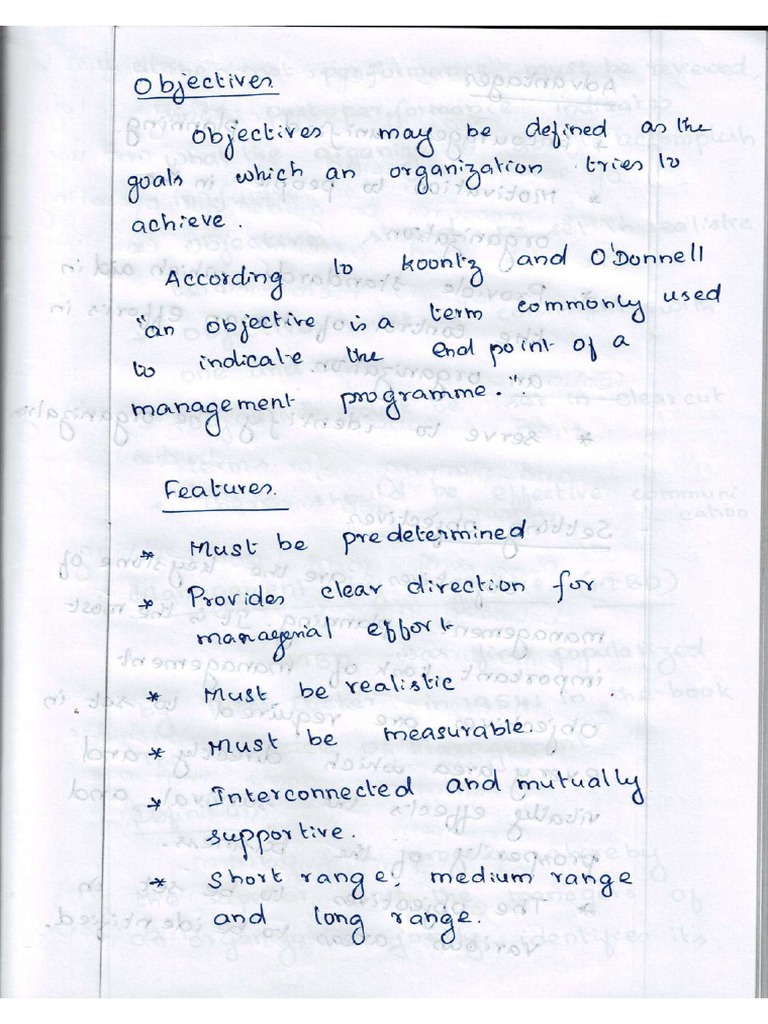 Objectives
Objectives may be defined as the
goals which an organization tries to
achieve.
According to Koontz and O'Donnell
"an objective is a term commonly used
to indicate the end point of a
management programme."
Features
* Must be predetermined
* Provides clear direction for
managerial effort
* Must be realistic
* Must be measurable.
* Interconnected and mutually
supportive.
* Short range, medium range
and long range.